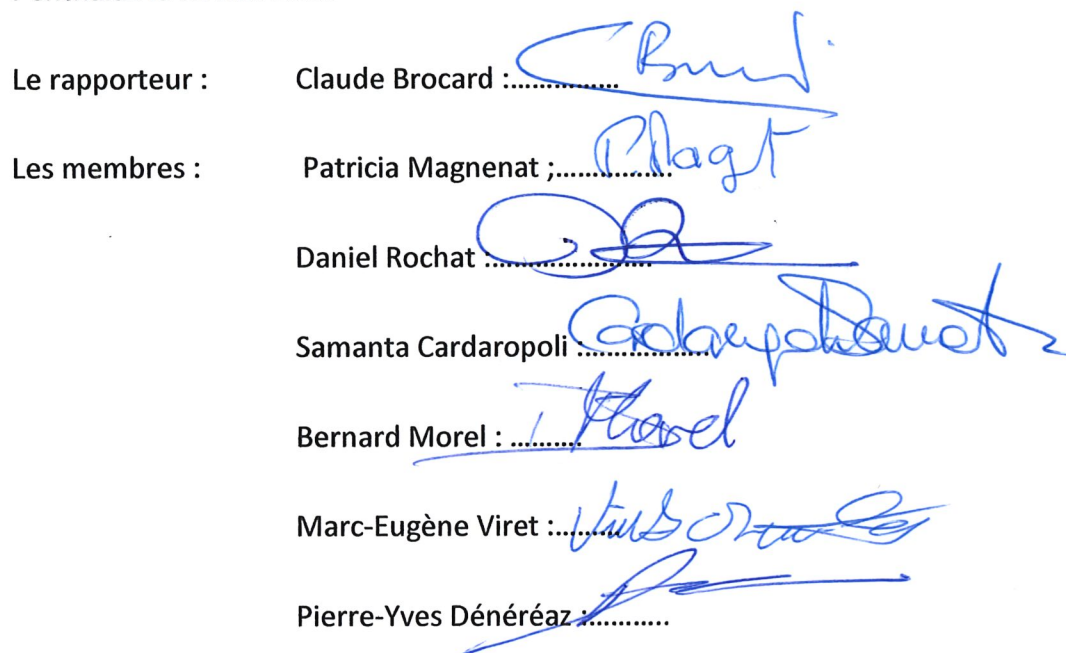 Le rapporteur : Claude Brocard :...............
Les membres : Patricia Magnenat ;.................
Daniel Rochat :.......................
Samanta Cardaropoli :..................
Bernard Morel : ......... Morel
Marc-Eugène Viret :..........
Pierre-Yves Dénéréaz :............